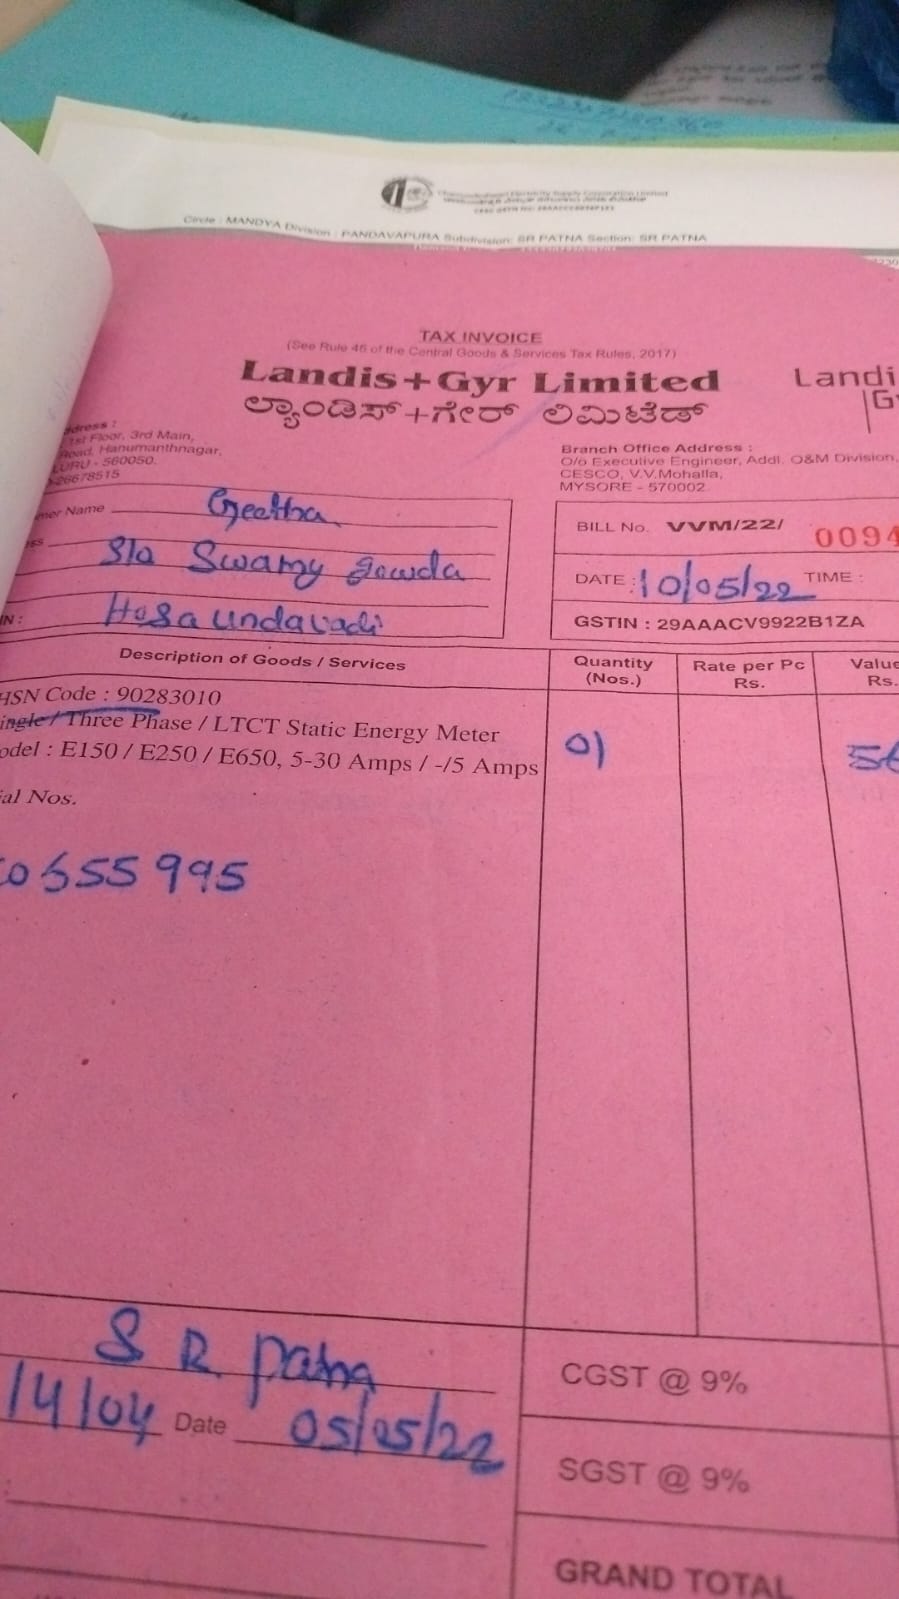 Circle : MANDYA Division : PANDAVAPURA Subdivision: SR PATNA Section: SR PATNA
TAX INVOICE
(See Rule 46 of the Central Goods & Services Tax Rules, 2017)
Landis+Gyr Limited
Landi
ಲ್ಯಾಂಡಿಸ್+ಗೇರ್ ಲಿಮಿಟೆಡ್
G
dress :
1st Floor, 3rd Main,
Road, Hanumanthnagar,
LURU - 560050.
-26678515
Branch Office Address :
O/o Executive Engineer, Addl. O&M Division,
CESCO, V.V.Mohalla,
MYSORE - 570002.
mer Name Geetha
ss S/o Swamy gowda
N : Hosaundavadi
BILL No. VVM/22/ 0094
DATE : 10/05/22 TIME :
GSTIN : 29AAACV9922B1ZA
Description of Goods / Services
Quantity (Nos.)
Rate per Pc Rs.
Value Rs.
HSN Code : 90283010
ingle / Three Phase / LTCT Static Energy Meter
odel : E150 / E250 / E650, 5-30 Amps / -/5 Amps
01
ial Nos.
S R Patna
14/04 Date 05/05/22
CGST @ 9%
SGST @ 9%
GRAND TOTAL